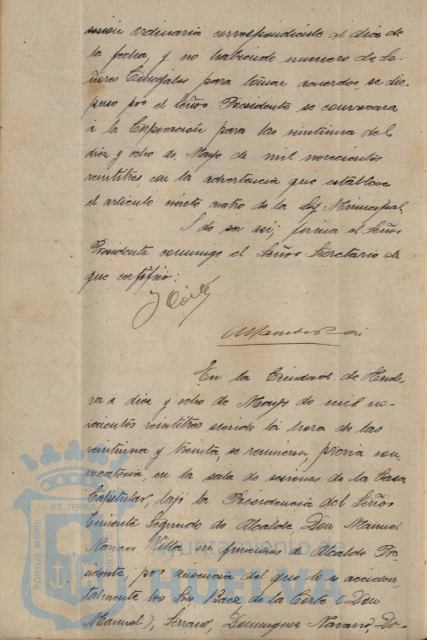 sesión ordinaria correspondiente al dia de
la fecha, y no habiendo numero de Se-
ñores Concejales para tomar acuerdos, se dis-
puso por el Señor Presidente se convocara
á la Corporación para las veintiuna del
diez y ocho de Mayo de mil novecientos
veintitres, con la advertencia que establece
el artículo ciento cuatro de la Ley Municipal.
Y de ser asi, firma el Señor
Presidente conmigo el Señor Secretario de
que certifico:
En la Ciudad de Huel-
va á diez y ocho de Mayo de mil no-
vecientos veintitres siendo la hora de las
veintiuna y treinta, se reunieron, previa con-
vocatoria, en la sala de sesiones de la Casa
Capitular, bajo la Presidencia del Señor
Teniente Segundo de Alcalde Don Manuel
Marin Villa, en funciones de Alcalde Pre-
sidente, por ausencia del que lo es acciden-
talmente los Sres Baez de la Corte (Don
Manuel), Serrano, Dominguez Navarro Do-
PORTUS MARIS ET TERRAE
Ayuntamiento de
HUELVA